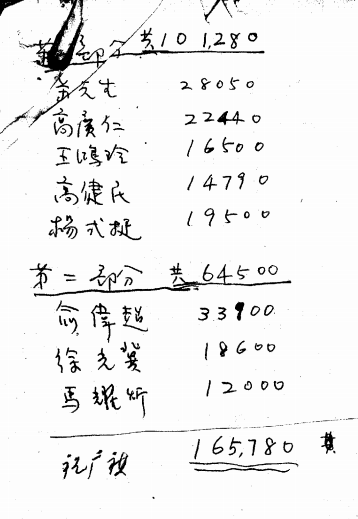 第一部分 共101,280
先生 28050
高廣仁 22440
王鴻玲 16500
高健民 14790
楊式挺 19500
第二部分 共64500
俞偉超 33900
徐光冀 18600
馬耀圻 12000
165,780 共